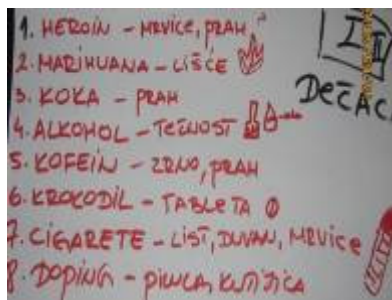 1. HEROIN - MRVICE, PRAH
2. MARIHUANA - LIŠĆE
3. KOKA - PRAH
DEČAC
4. ALKOHOL - TEČNOST
5. KOFEIN - ZRNO, PRAH
6. KROKODIL - TABLETA
7. CIGARETE - LIST, DUVAN, MRVICE
8. DOPING - PILULA, KUTIJICA